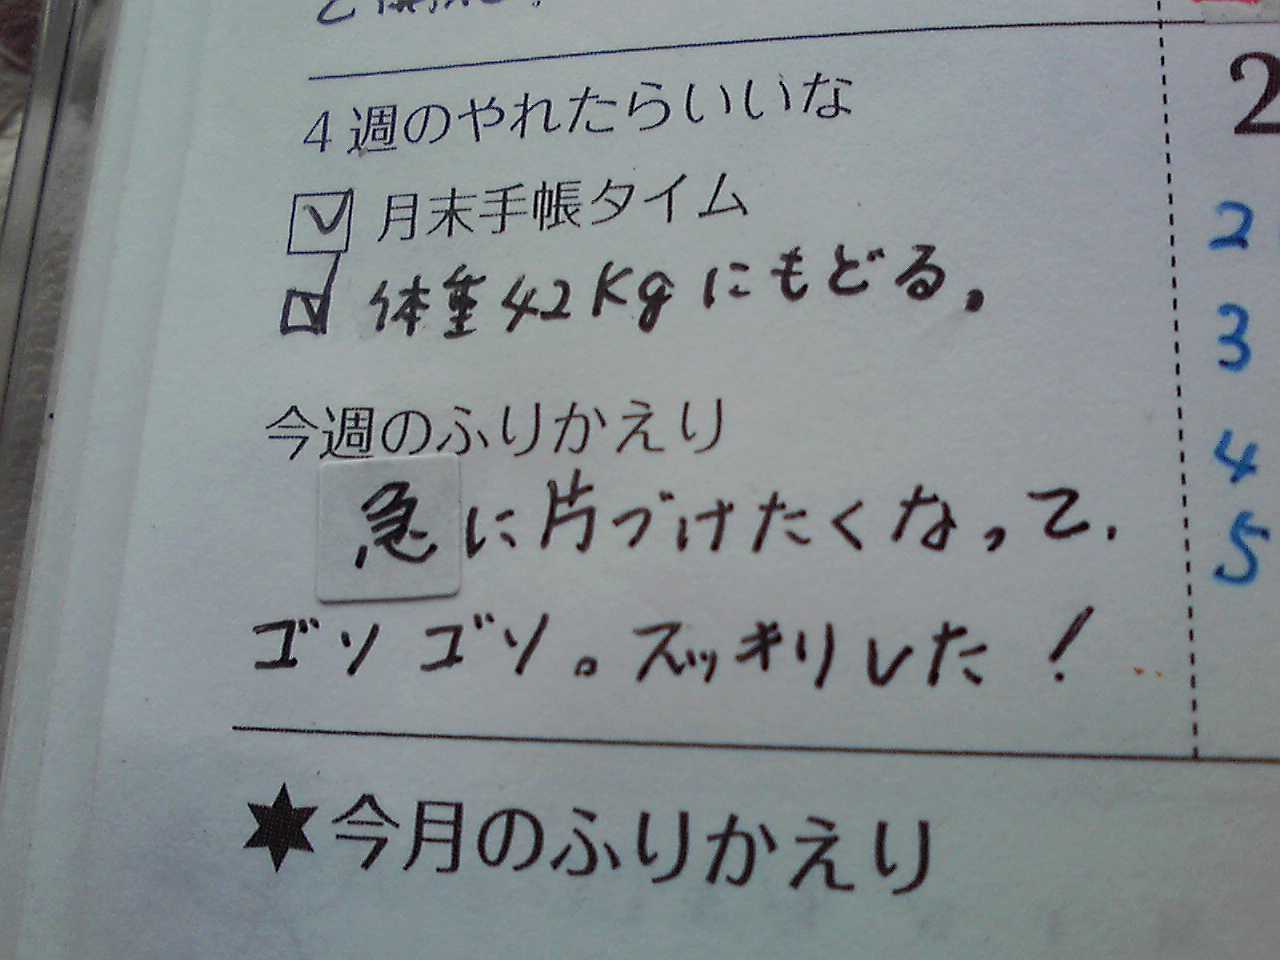 4週のやれたらいいな
月末手帳タイム
体重42Kgにもどる。
今週のふりかえり
急に片づけたくなって、
ゴソゴソ。スッキリした!
★今月のふりかえり
2
2
3
4
5